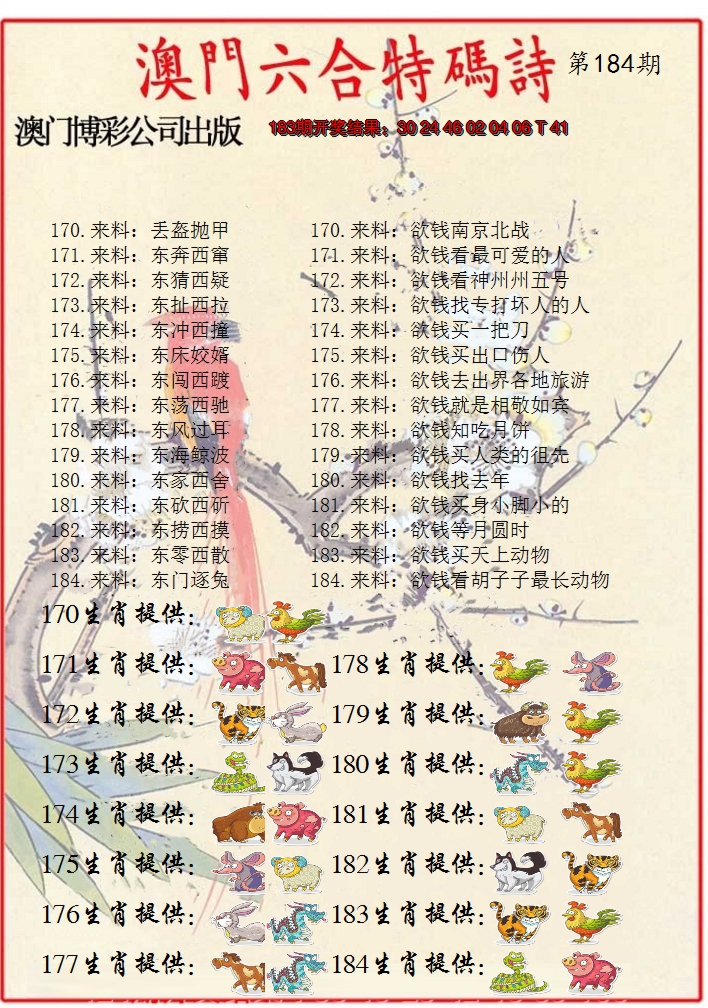 澳門六合特碼詩 第184期
澳门博彩公司出版 183期开奖结果：30 24 46 02 04 06 T 41
170.来料：丢盔抛甲 170.来料：欲钱南京北战
171.来料：东奔西窜 171.来料：欲钱看最可爱的人
172.来料：东猜西疑 172.来料：欲钱看神州州五号
173.来料：东扯西拉 173.来料：欲钱找专打坏人的人
174.来料：东冲西撞 174.来料：欲钱买一把刀
175.来料：东床姣婿 175.来料：欲钱买出口伤人
176.来料：东闯西踱 176.来料：欲钱去出界各地旅游
177.来料：东荡西驰 177.来料：欲钱就是相敬如宾
178.来料：东风过耳 178.来料：欲钱知吃月饼
179.来料：东海鲸波 179.来料：欲钱买人类的徂先
180.来料：东家西舍 180.来料：欲钱找去年
181.来料：东砍西斫 181.来料：欲钱买身小脚小的
182.来料：东捞西摸 182.来料：欲钱等月圆时
183.来料：东零西散 183.来料：欲钱买天上动物
184.来料：东门逐兔 184.来料：欲钱看胡子子最长动物
170生肖提供：
171生肖提供： 178生肖提供：
172生肖提供： 179生肖提供：
173生肖提供： 180生肖提供：
174生肖提供： 181生肖提供：
175生肖提供： 182生肖提供：
176生肖提供： 183生肖提供：
177生肖提供： 184生肖提供：